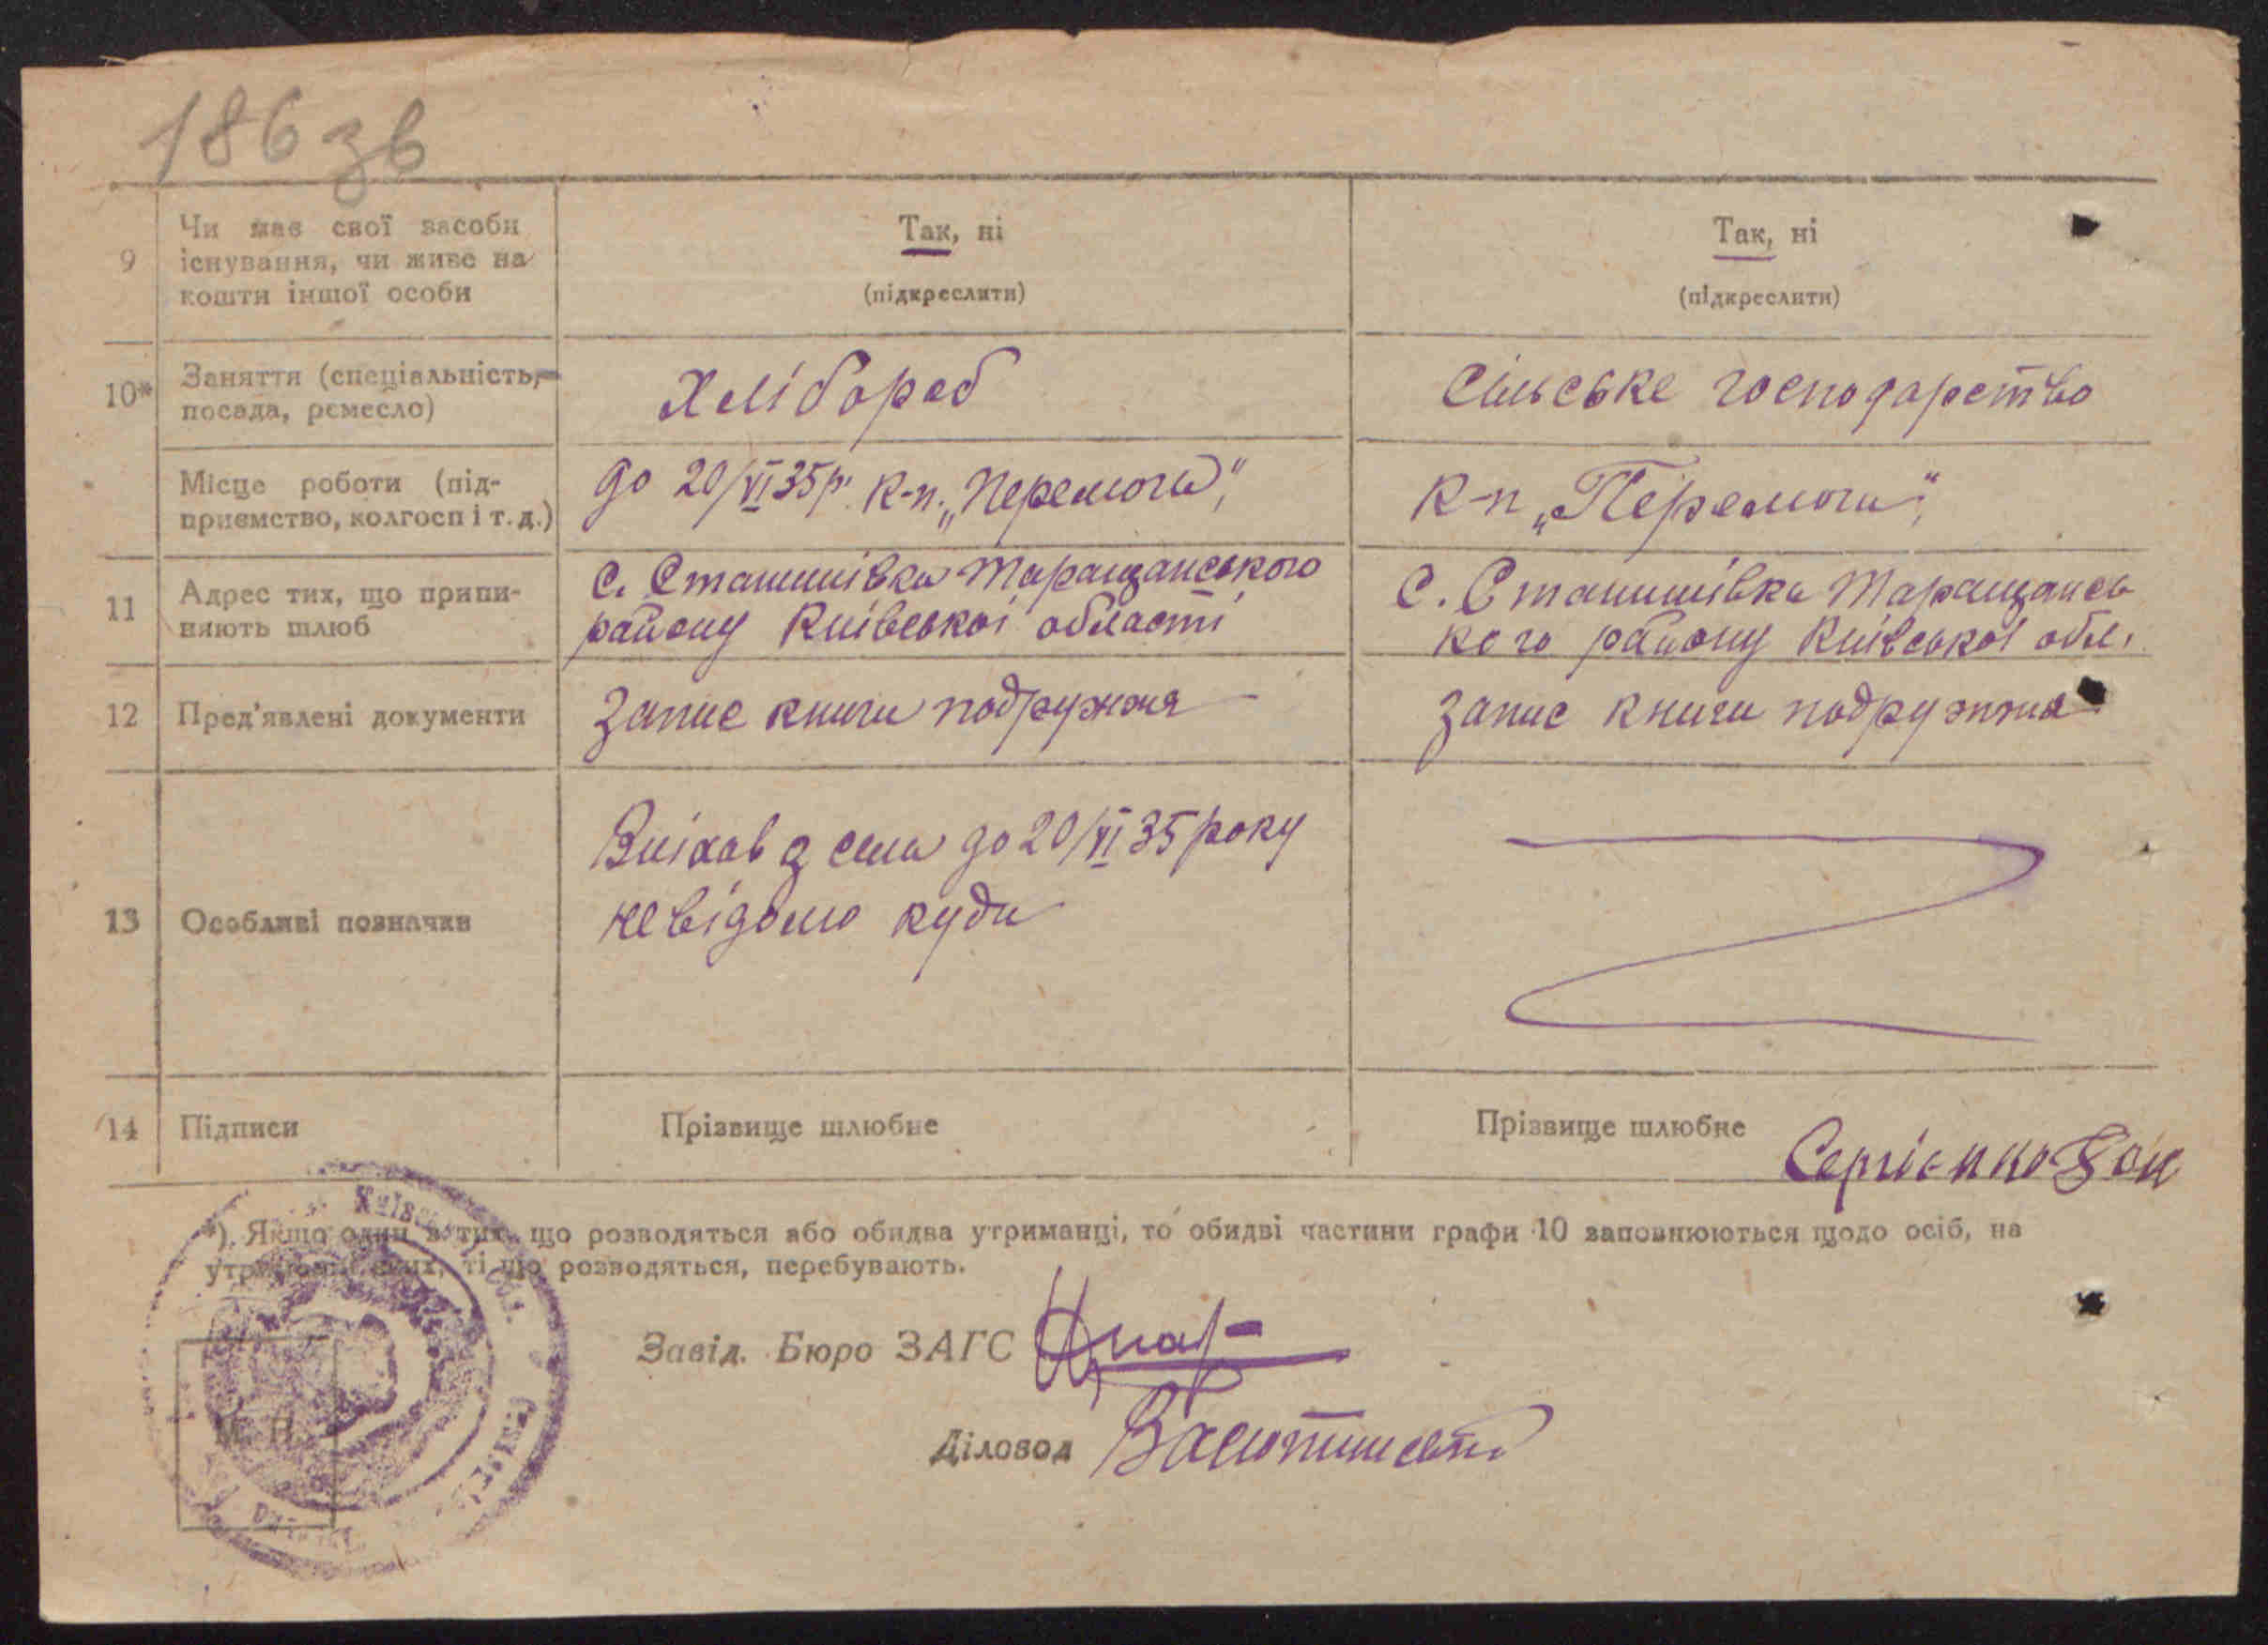 186 зв
9
Чи має свої засоби
існування, чи живе на
кошти іншої особи
Так, ні
(підкреслити)
Так, ні
(підкреслити)
10*
Заняття (спеціальність,
посада, ремесло)
Хлібороб
Сільське господарство
Місце роботи (під-
приємство, колгосп і т. д.)
до 20/VI 35 р. к-п. „Перемога"
к-п „Перемога"
11
Адрес тих, що припи-
няють шлюб
С. Сташишівка Таращанського
району Київської області
С. Сташишівка Таращансь
кого району Київської обл.
12
Пред'явлені документи
Запис книги подружжя
Запис книги подружжя
13
Особливі позначки
Виїхав з села до 20/VI 35 року
невідомо куди
14
Підписи
Прізвище шлюбне
Прізвище шлюбне
Сергієнко
*). Якщо один з тих, що розводяться або обидва утриманці, то обидві частини графи 10 заповнюються щодо осіб, на
утриманні яких, ті що розводяться, перебувають.
Завід. Бюро ЗАГС
Діловод
М. П.